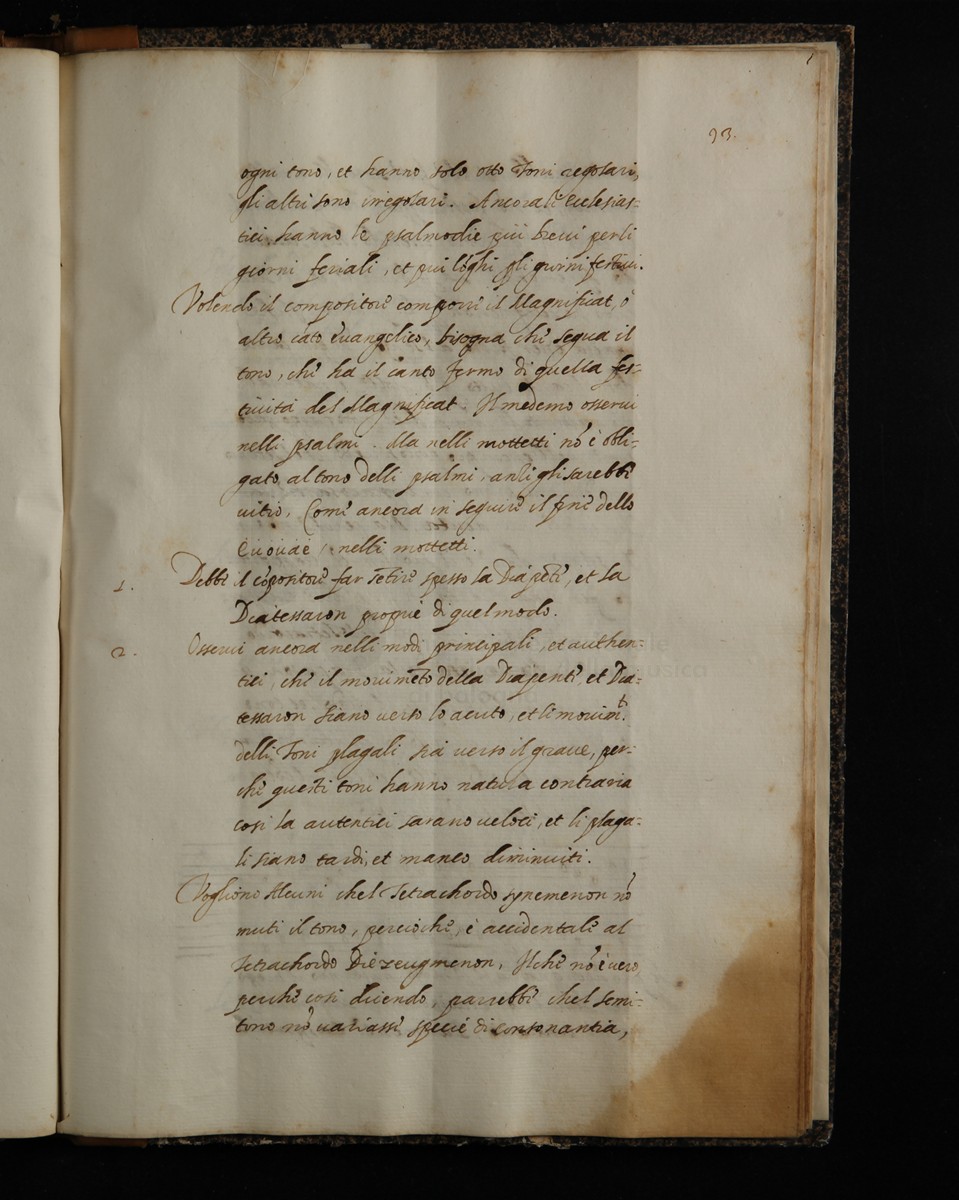 93.
ogni tono, et hanno solo otto Toni regolari,
gli altri sono irregolari. Ancora li Ecclesias-
tici, hanno le psalmodie più brevi per li
giorni feriali, et più lõghi gli giorni festiui.
Volendo il compositore comporre il Magnificat, ò
altro cãto Euangelico, bisogna che segua il
tono, che ha il canto fermo di quella fes-
tiuità del Magnificat. Il medemo osserui
nelli psalmi. Ma nelli mottetti nõ è obli-
gato al tono delli psalmi, anzi gli sarebbe
uitio, Come ancora in seguire il fine dello
Euouae, nelli mottetti.
1. Debbe il cõpositore far sẽtire spesso la Diapẽte, et la
Diatessaron proprie di quel modo.
2. Osserui ancora nelli modi principali, et authen-
tici, che il mouimẽto della Diapente, et Dia-
tessaron siano verso lo acuto, et li mouimti.
delli Toni plagali sia verso il graue, per-
che questi toni hanno natura contraria
cosi la autentici sarano veloci, et li plaga-
li siano tardi, et manco diminuiti.
Vogliono Alcuni chel Tetrachordo synemenon nõ
muti il tono, percioche, è accidentale al
Tetrachordo Diezeugmenon, Il che nõ è vero,
perche cosi dicendo, parrebbe chel semi-
tono nõ uariasse specie di consonantia,